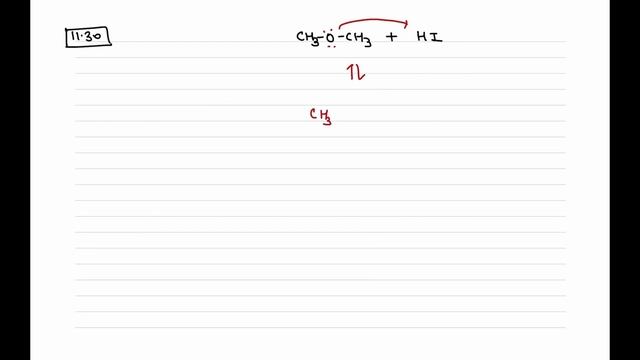 11.30
CH₃-O-CH₃ + HI
⇌
CH₃